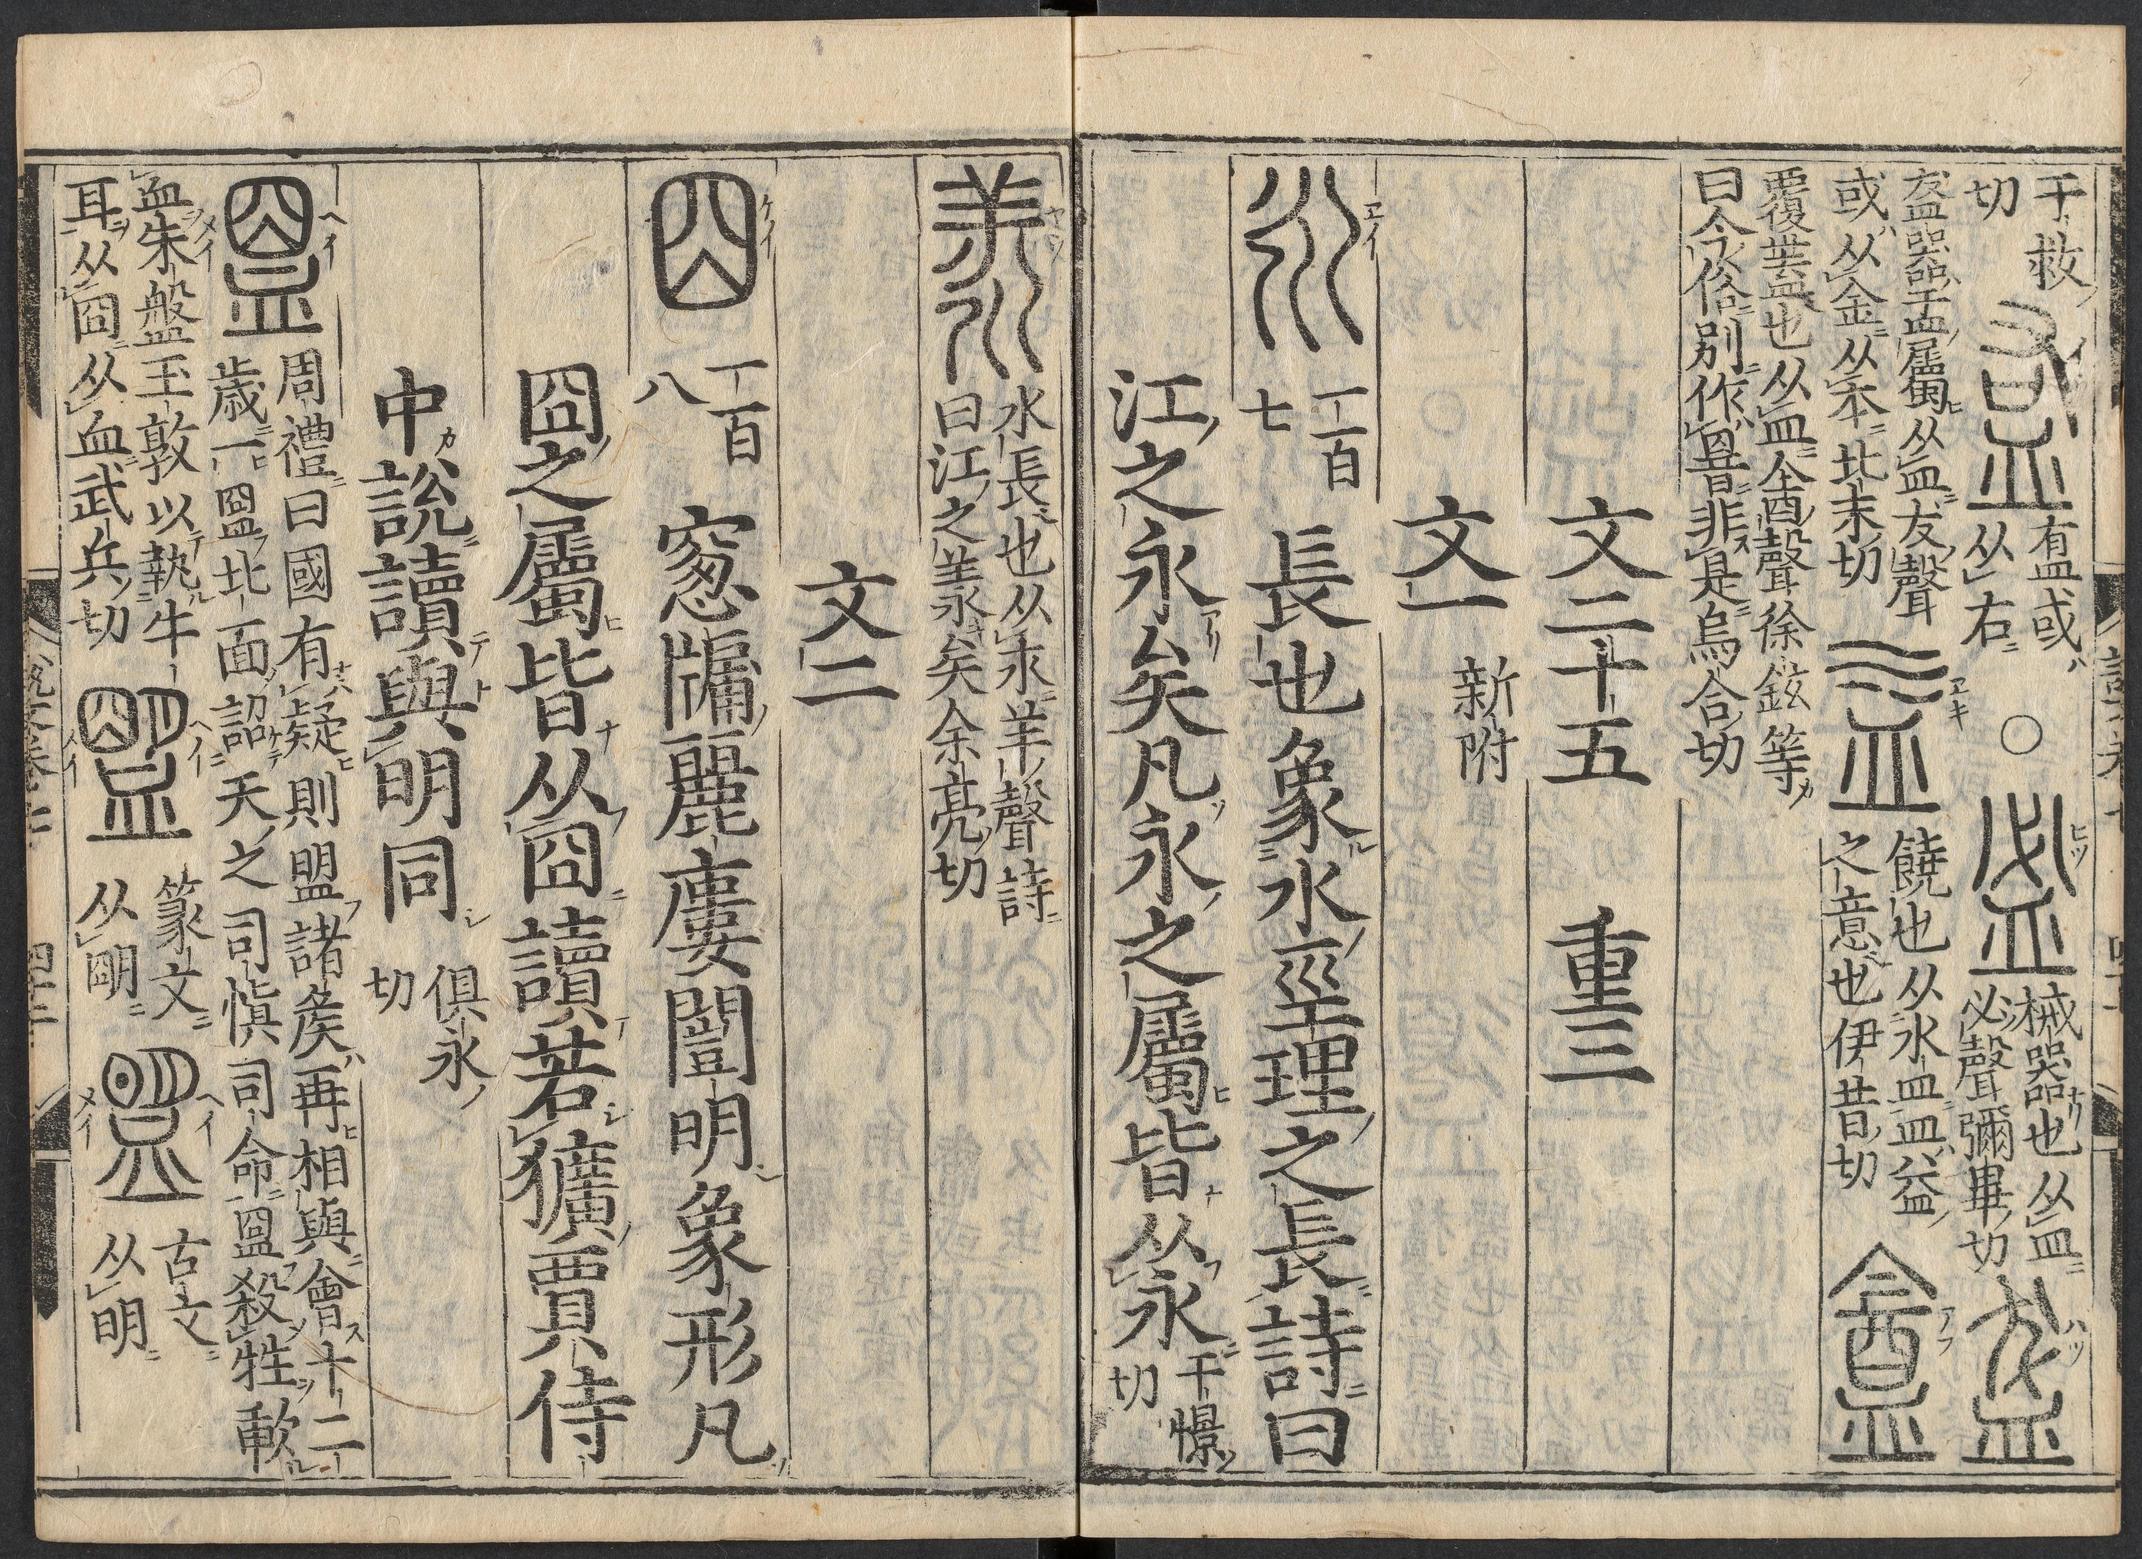 于救
切
𥁓
𥁓或
从右
○
𥁑
械器也从皿
必聲彌畢切
盋
盋器盂皿屬从皿犮聲
或从金从本北末切
益
饒也从水皿皿益
之意也伊昔切
盦
覆葢也从皿酓聲徐鉉等
曰今俗別作罯非是烏合切
文二十五　重三
文一　新附
永
一百
七
長也象水巠理之長詩曰
江之永矣凡永之屬皆从永
于憬
切
羕
水長也从永羊聲詩
曰江之羕矣余亮切
文二
囧
一百
八
窻牖麗廔闓明象形凡
囧之屬皆从囧讀若獷賈侍
中說讀與明同
俱永
切
𥁰
周禮曰國有疑則盟諸矦再相與會十二
歲一𥁰北面詔天之司愼司命𥁰殺牲歃
血朱盤玉敦以執牛
耳从囧从血武兵切
篆文
从朙
古文
从明